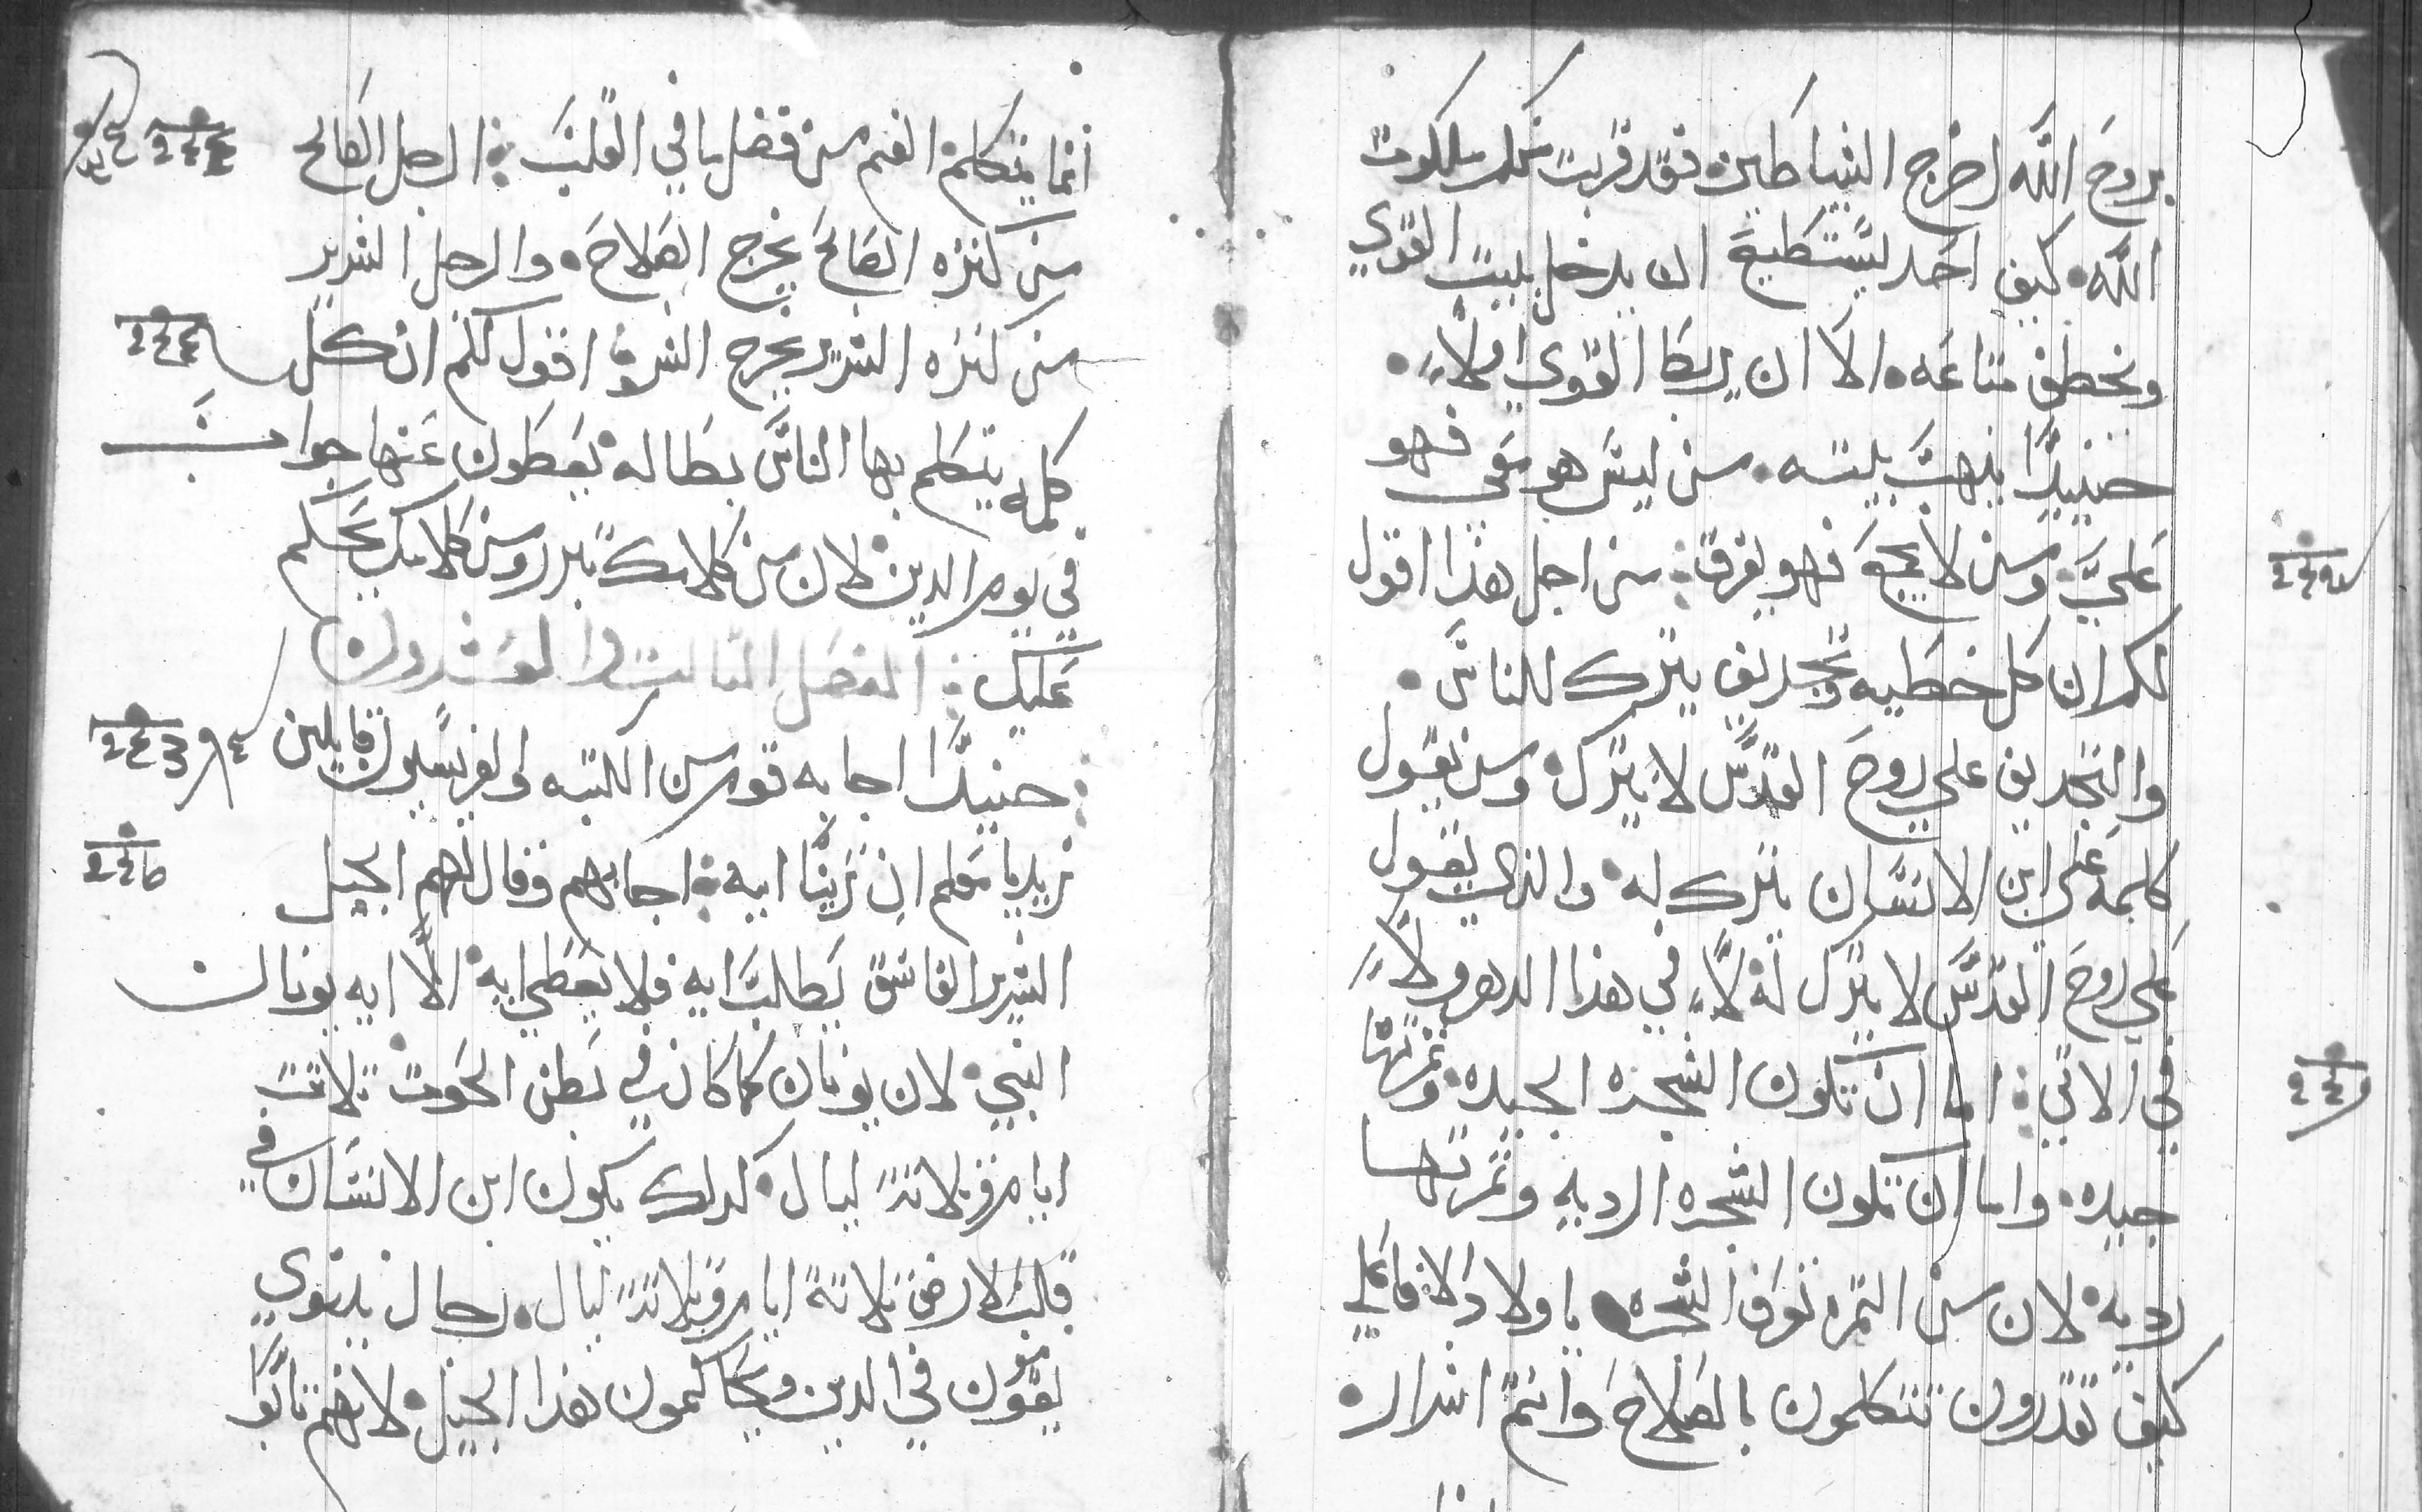 بروح الله اخرج الشياطين فقد قربت منكم ملكوت
الله. كيف احد يستطيع ان يدخل بيت القوي
ويخطف متاعه. الا ان يربط القوي اولاً.
حينيذ ينهب بيته. من ليس هو معي فهو
علي. ومن لا يجمع فهو يفرق: من اجل هذا اقول
لكم ان كل خطيه وتجديف يترك للناس.
والتجديف علي روح القدس لا يترك. ومن يقول
كلمه علي ابن الانسان يترك له. والذي يقول
علي روح القدس لا يترك له لا في هذا الدهر ولا
في الاتي: اما ان تكون الشجره الجيده وثمرتها
جيده. واما ان تكون الشجره الرديه وثمرتها
رديه. لان من الثمره تعرف الشجره يا اولاد الافاعي
كيف تقدرون تتكلمون بالصلاح وانتم اشرار.
انما يتكلم الفم من فضل ما في القلب: الرجل الصالح
من كنزه الصالح يخرج الصلاح. والرجل الشرير
من كنزه الشرير يخرج الشر: اقول لكم ان كل
كلمه يتكلم بها الناس بطاله يعطون عنها جواب
في يوم الدين. لان من كلامك تبرر ومن كلامك يحكم
عليك: الفصل الثالث والعشرون
حينيذ اجابه قوم من الكتبه والفريسيون قايلين
نريد يا معلم ان ترينا ايه: اجابهم وقال لهم الجيل
الشرير الفاسق يطلب ايه فلا يعطي ايه الا ايه يونان
النبي. لان يونان كما كان في بطن الحوت ثلاثة
ايام وثلاثة ليال. كدلك يكون ابن الانسان في
قلب الارض ثلاثة ايام وثلاثة ليال. رجال نينوي
يقومون في الدين ويحاكمون هذا الجيل. لانهم تابوا